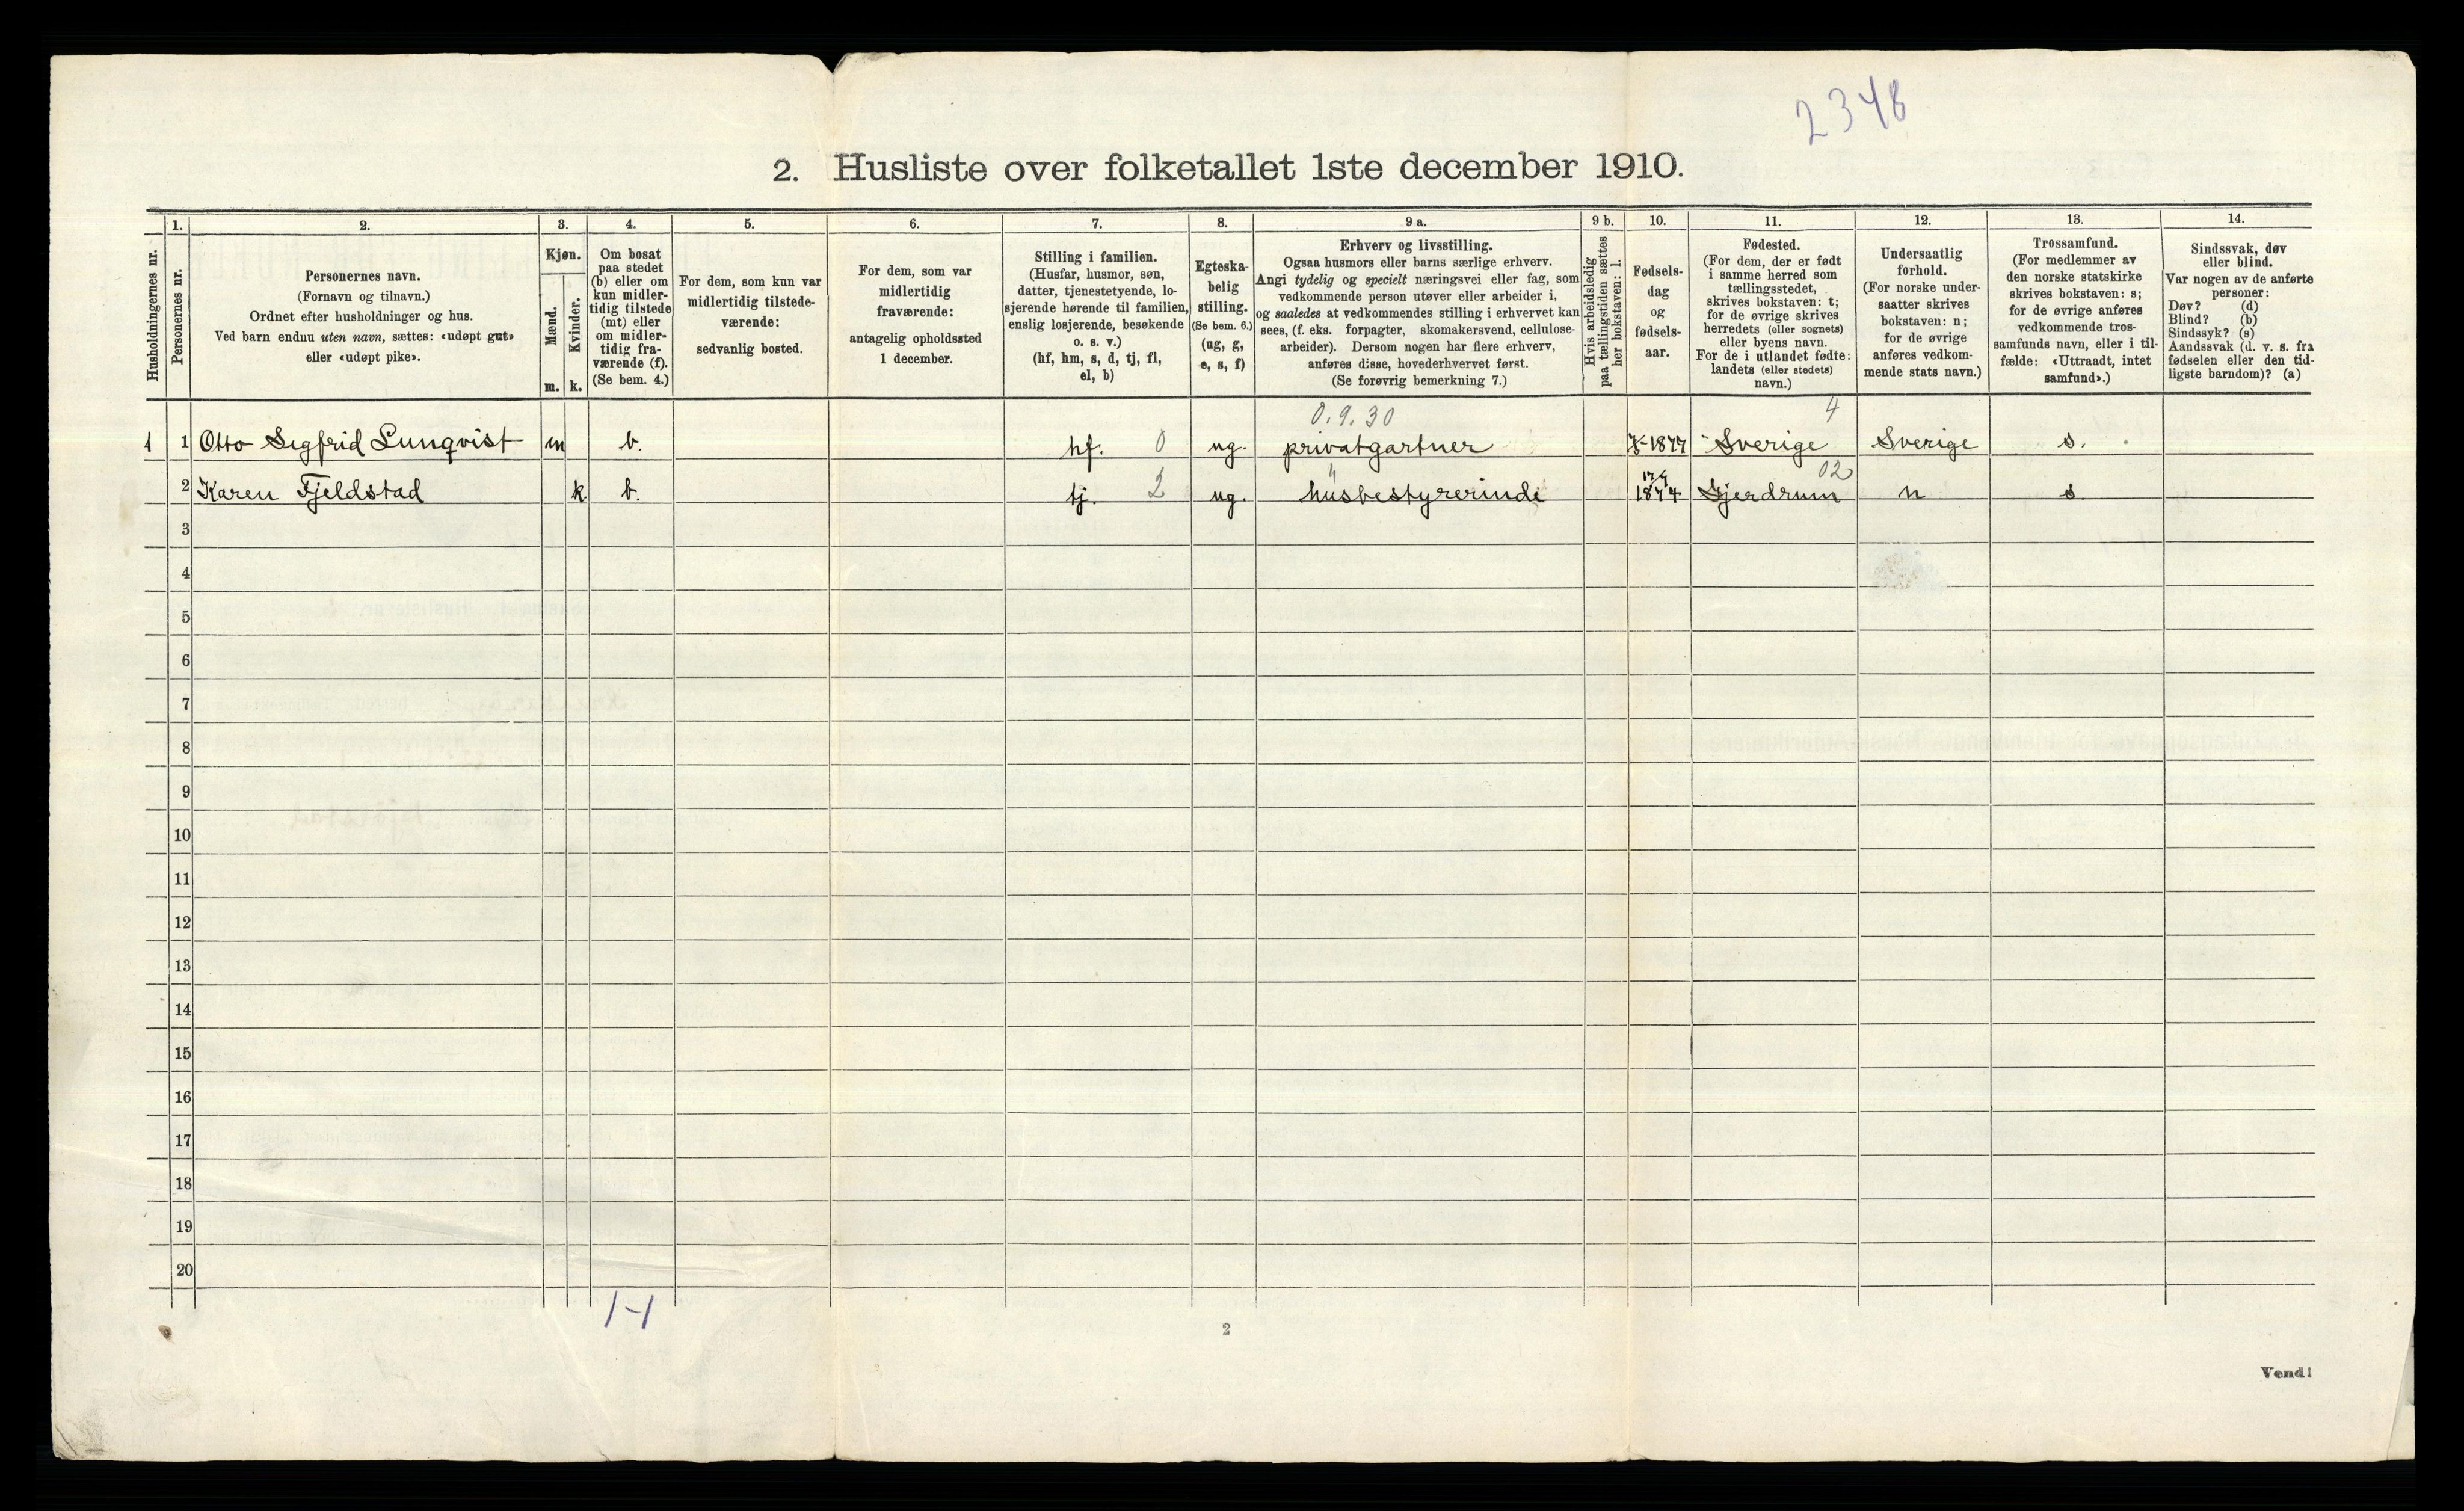 2348
2. Husliste over folketallet 1ste december 1910.
Husholdningernes nr.
1.
Personernes nr.
2.
Personernes navn.
(Fornavn og tilnavn.)
Ordnet efter husholdninger og hus.
Ved barn endnu uten navn, sættes: «udøpt gut»
eller «udøpt pike».
3.
Kjøn.
Mænd.
m.
Kvinder.
k.
4.
Om bosat
paa stedet
(b) eller om
kun midler-
tidig tilstede
(mt) eller
om midler-
tidig fra-
værende (f).
(Se bem. 4.)
5.
For dem, som kun var
midlertidig tilstede-
værende:
sedvanlig bosted.
6.
For dem, som var
midlertidig
fraværende:
antagelig opholdssted
1 december.
7.
Stilling i familien.
(Husfar, husmor, søn,
datter, tjenestetyende, lo-
sjerende hørende til familien,
enslig losjerende, besøkende
o. s. v.)
(hf, hm, s, d, tj, fl,
el, b)
8.
Egteska-
belig
stilling.
(Se bem. 6.)
(ug, g,
e, s, f)
9 a.
Erhverv og livsstilling.
Ogsaa husmors eller barns særlige erhverv.
Angi tydelig og specielt næringsvei eller fag, som
vedkommende person utøver eller arbeider i,
og saaledes at vedkommendes stilling i erhvervet kan
sees, (f. eks. forpagter, skomakersvend, cellulose-
arbeider). Dersom nogen har flere erhverv,
anføres disse, hovederhvervet først.
(Se forøvrig bemerkning 7.)
9 b.
Hvis arbeidsledig
paa tællingstiden sættes
her bokstaven: l.
10.
Fødsels-
dag
og
fødsels-
aar.
11.
Fødested.
(For dem, der er født
i samme herred som
tællingsstedet,
skrives bokstaven: t;
for de øvrige skrives
herredets (eller sognets)
eller byens navn.
For de i utlandet fødte:
landets (eller stedets)
navn.)
12.
Undersaatlig
forhold.
(For norske under-
saatter skrives
bokstaven: n;
for de øvrige
anføres vedkom-
mende stats navn.)
13.
Trossamfund.
(For medlemmer av
den norske statskirke
skrives bokstaven: s;
for de øvrige anføres
vedkommende tros-
samfunds navn, eller i til-
fælde: «Uttraadt, intet
samfund».)
14.
Sindssvak, døv
eller blind.
Var nogen av de anførte
personer:
Døv? (d)
Blind? (b)
Sindssyk? (s)
Aandssvak (d. v. s. fra
fødselen eller den tid-
ligste barndom)? (a)
0.9.30 4
1 1 Otto Segfrid Lunqvist m b. hf. 0 ug. privatgartner 1877 Sverige Sverige s.
" 02
2 Karen Fjeldstad k b. tj. 2 ug. husbestyrerinde 1874 Gjerdrum n s
3
4
5
6
7
8
9
10
11
12
13
14
15
16
17
18
19
20
1-1
2
Vend!